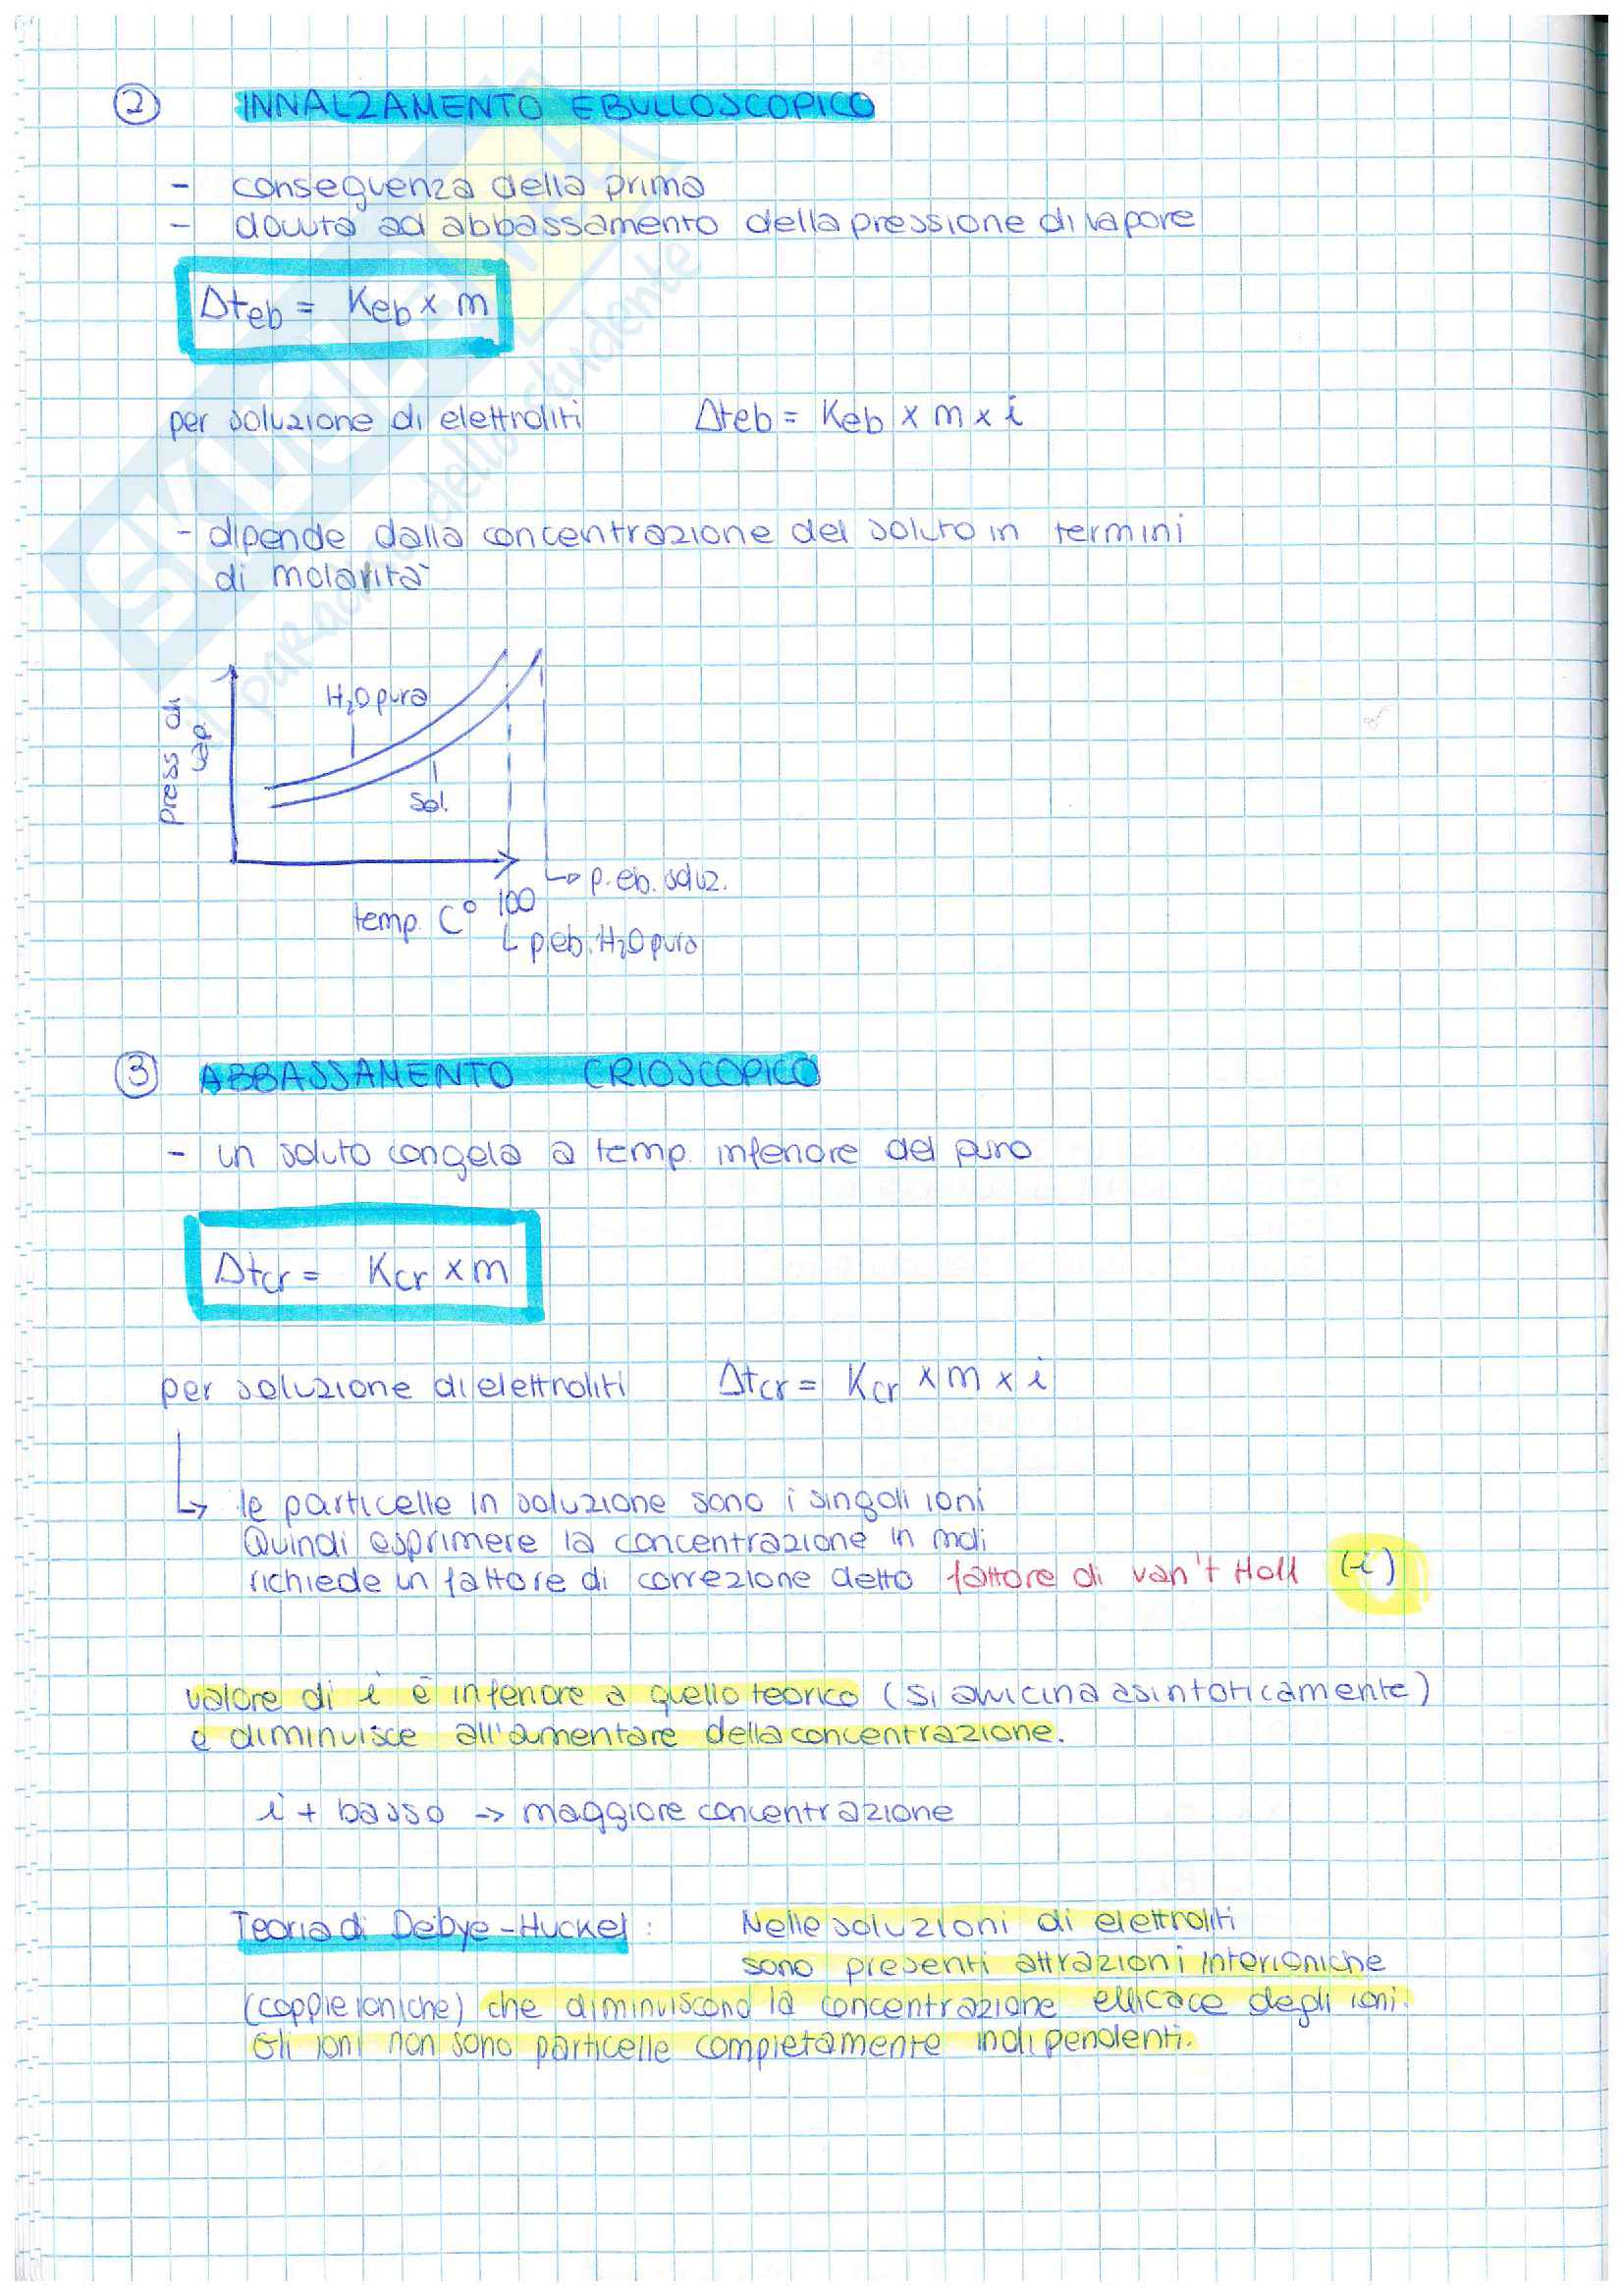 2 INNALZAMENTO EBULLOSCOPICO
- conseguenza della prima
- dovuta ad abbassamento della pressione di vapore
Δteb = Keb x m
per soluzione di elettroliti Δteb = Keb x m x i
- dipende dalla concentrazione del soluto in termini
di molarità
H₂O pura
Press di
vap.
Sol.
p. eb. soluz.
temp. C° 100
p.eb. H₂O pura
3 ABBASSAMENTO CRIOSCOPICO
- un soluto congela a temp. inferiore del puro
Δtcr = Kcr x m
per soluzione di elettroliti Δtcr = Kcr x m x i
le particelle in soluzione sono i singoli ioni
Quindi esprimere la concentrazione in moli
richiede un fattore di correzione detto fattore di van't Hoff (i)
valore di i è inferiore a quello teorico (si avvicina asintoticamente)
e diminuisce all'aumentare della concentrazione.
i + basso → maggiore concentrazione
Teoria di Debye-Huckel: Nelle soluzioni di elettroliti
sono presenti attrazioni interioniche
(coppie ioniche) che diminuiscono la concentrazione efficace degli ioni.
Gli ioni non sono particelle completamente indipendenti.